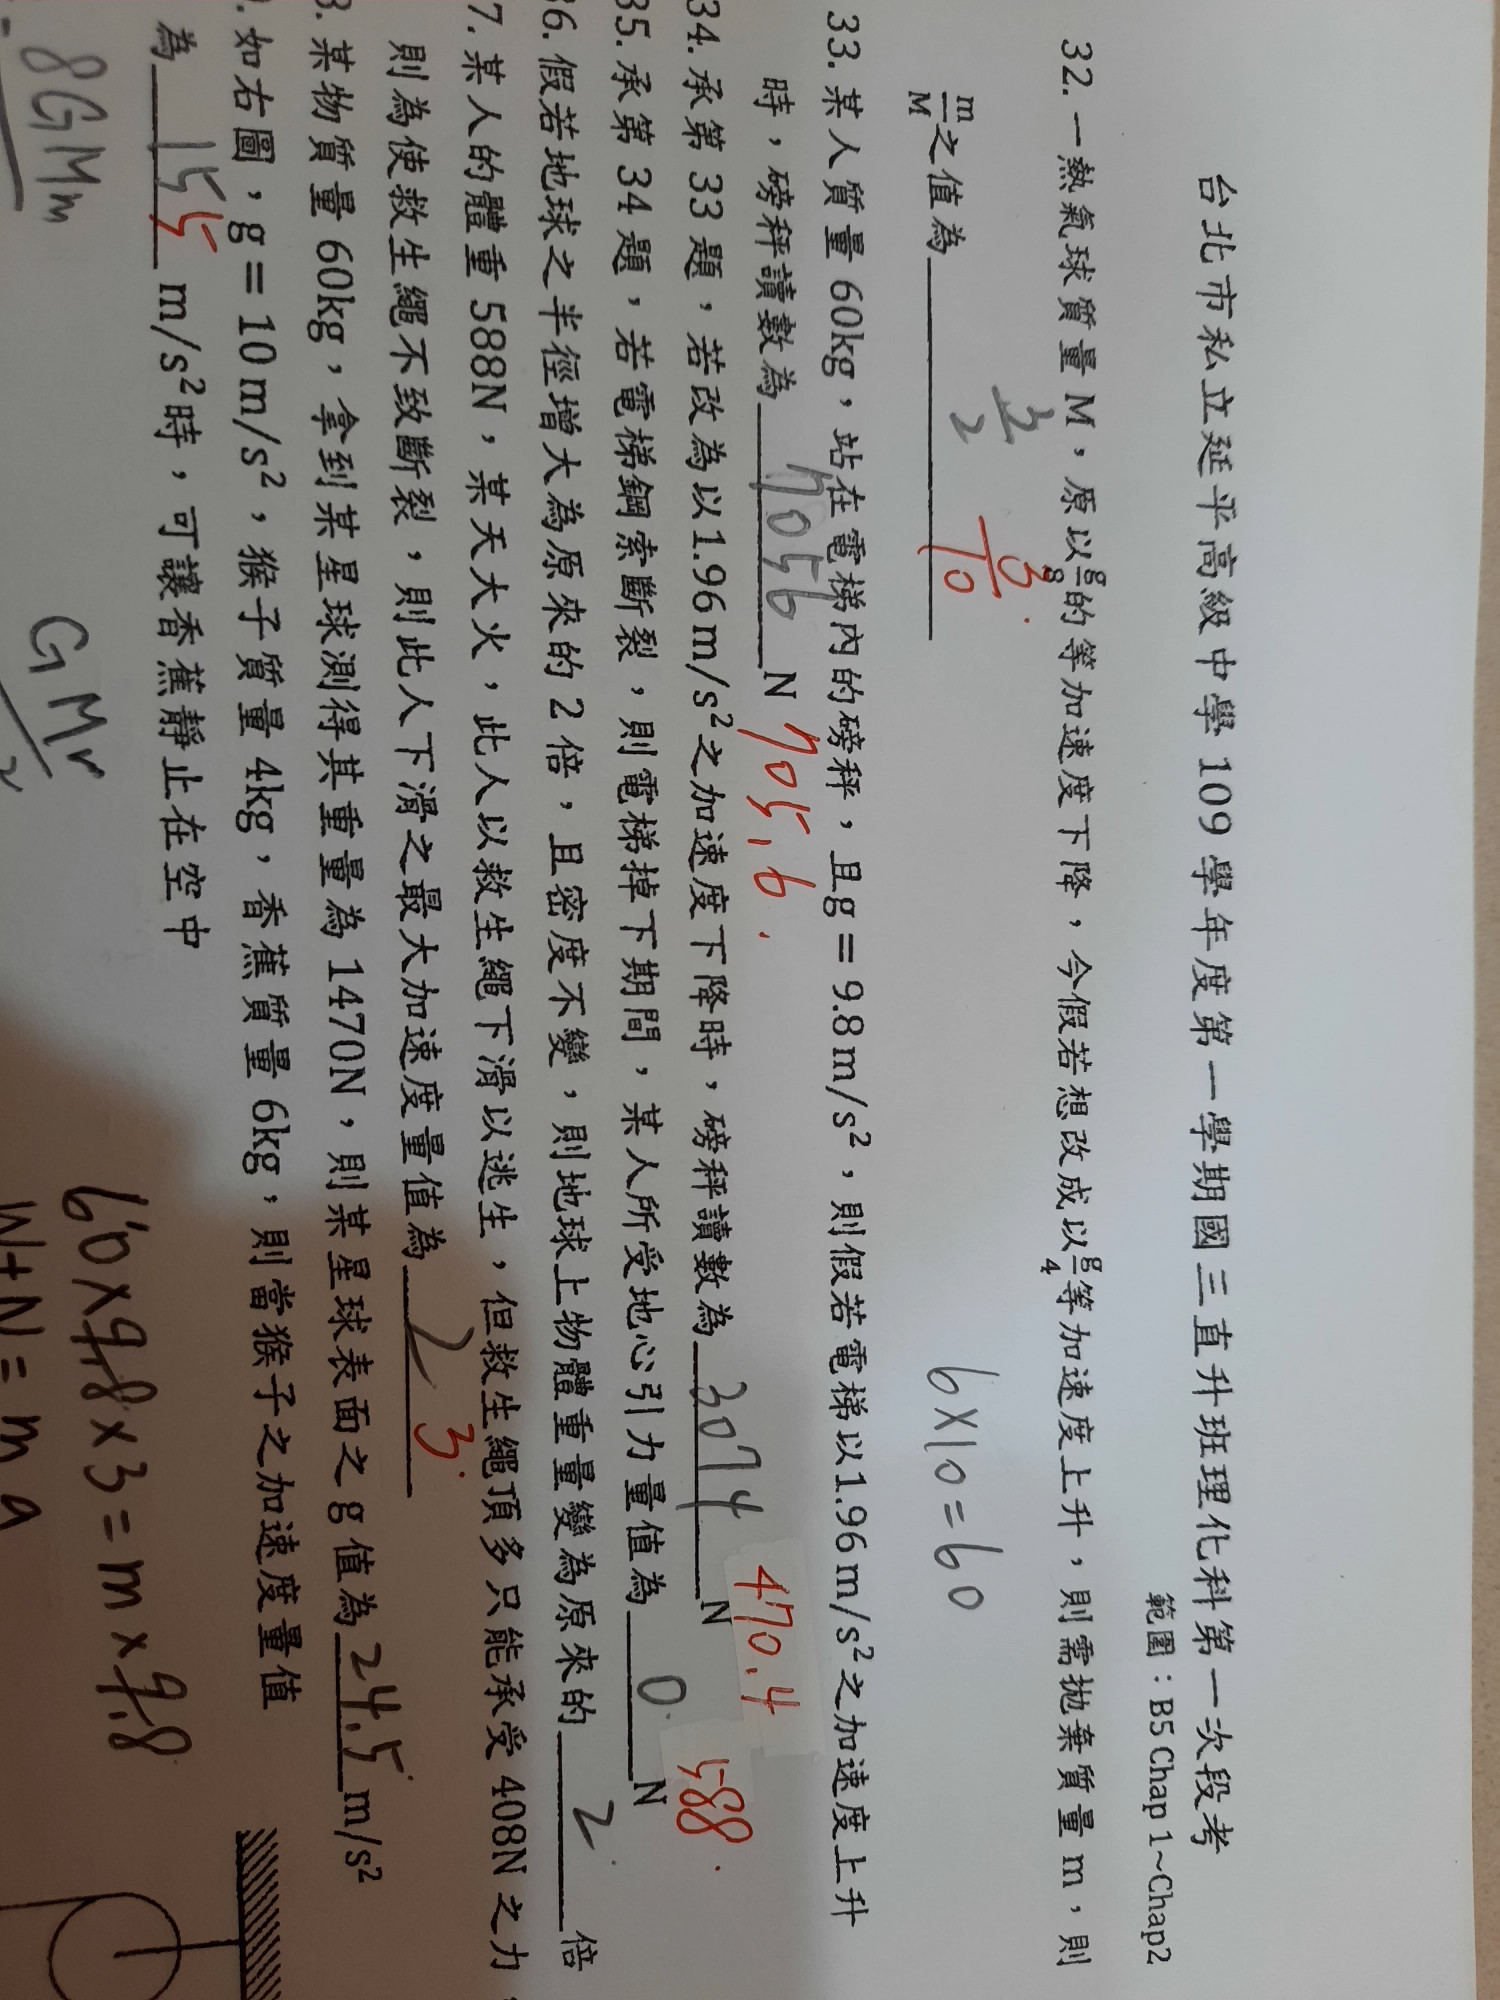 台北市私立延平高級中學 109 學年度第一學期國三直升班理化科第一次段考
範圍：B5 Chap 1~Chap2
32. 一熱氣球質量 M，原以g/8的等加速度下降，今假若想改成以g/4等加速度上升，則需拋棄質量 m，則
m/M之值為 3/2 3/10
6×10=60
33. 某人質量 60kg，站在電梯內的磅秤，且g＝9.8m/s²，則假若電梯以1.96m/s²之加速度上升
時，磅秤讀數為 7056 N 705.6
34. 承第 33 題，若改為以1.96m/s²之加速度下降時，磅秤讀數為 3074 N 470.4
35. 承第 34 題，若電梯鋼索斷裂，則電梯掉下期間，某人所受地心引力量值為 0 N 588
36. 假若地球之半徑增大為原來的 2 倍，且密度不變，則地球上物體重量變為原來的 2 倍
7. 某人的體重 588N，某天大火，此人以救生繩下滑以逃生，但救生繩頂多只能承受 408N 之力，
則為使救生繩不致斷裂，則此人下滑之最大加速度量值為 2 3
3. 某物質量 60kg，拿到某星球測得其重量為 1470N，則某星球表面之 g 值為 24.5 m/s²
. 如右圖，g＝10m/s²，猴子質量 4kg，香蕉質量 6kg，則當猴子之加速度量值
為 15 5 m/s²時，可讓香蕉靜止在空中
8GMm
GMr
2
60×9.8×3=m×9.8
W+N=ma